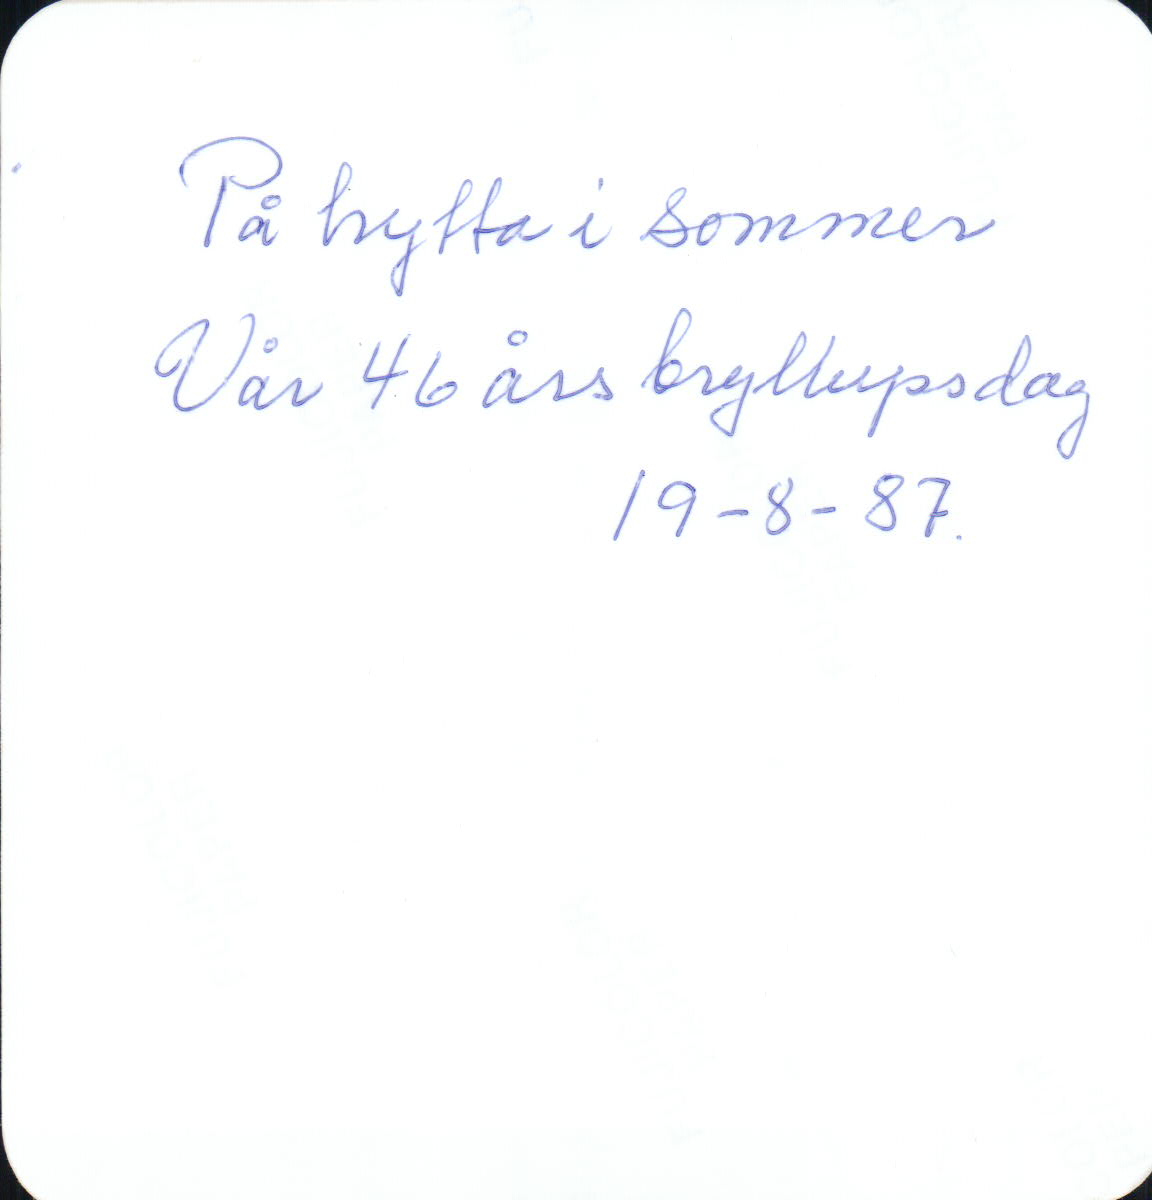 På hytta i sommer
Vår 46 års bryllupsdag
19-8-87.
FUJICOLOR
PAPER